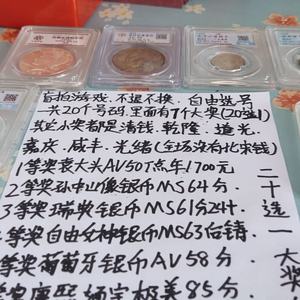 盲拍游戏、不退不换、自由选号
一共20千号码.里面有7个大奖(20选1)
其它小奖都是清钱、乾隆、道光、
嘉庆、咸丰、光绪(全场没有北宋钱)
1等奖袁大头AU50T点年1700元
2等奖孙中山像银币MS64分、
3等奖瑞典银币MS61分24t.
等奖自由女神银币MS63台铸、
等奖葡萄牙银币AV58分、
等奖康熙 极美85分
二十选一
大奖